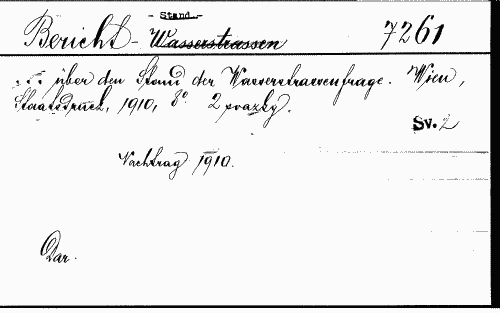 - Stand. -
Bericht - Wasserstrassen 7261
... über den Stand der Wasserstrassenfrage. Wien,
Staatsdruck, 1910, 8° 2 svazky.
Sv. 2
Nachtrag 1910.
Dar.